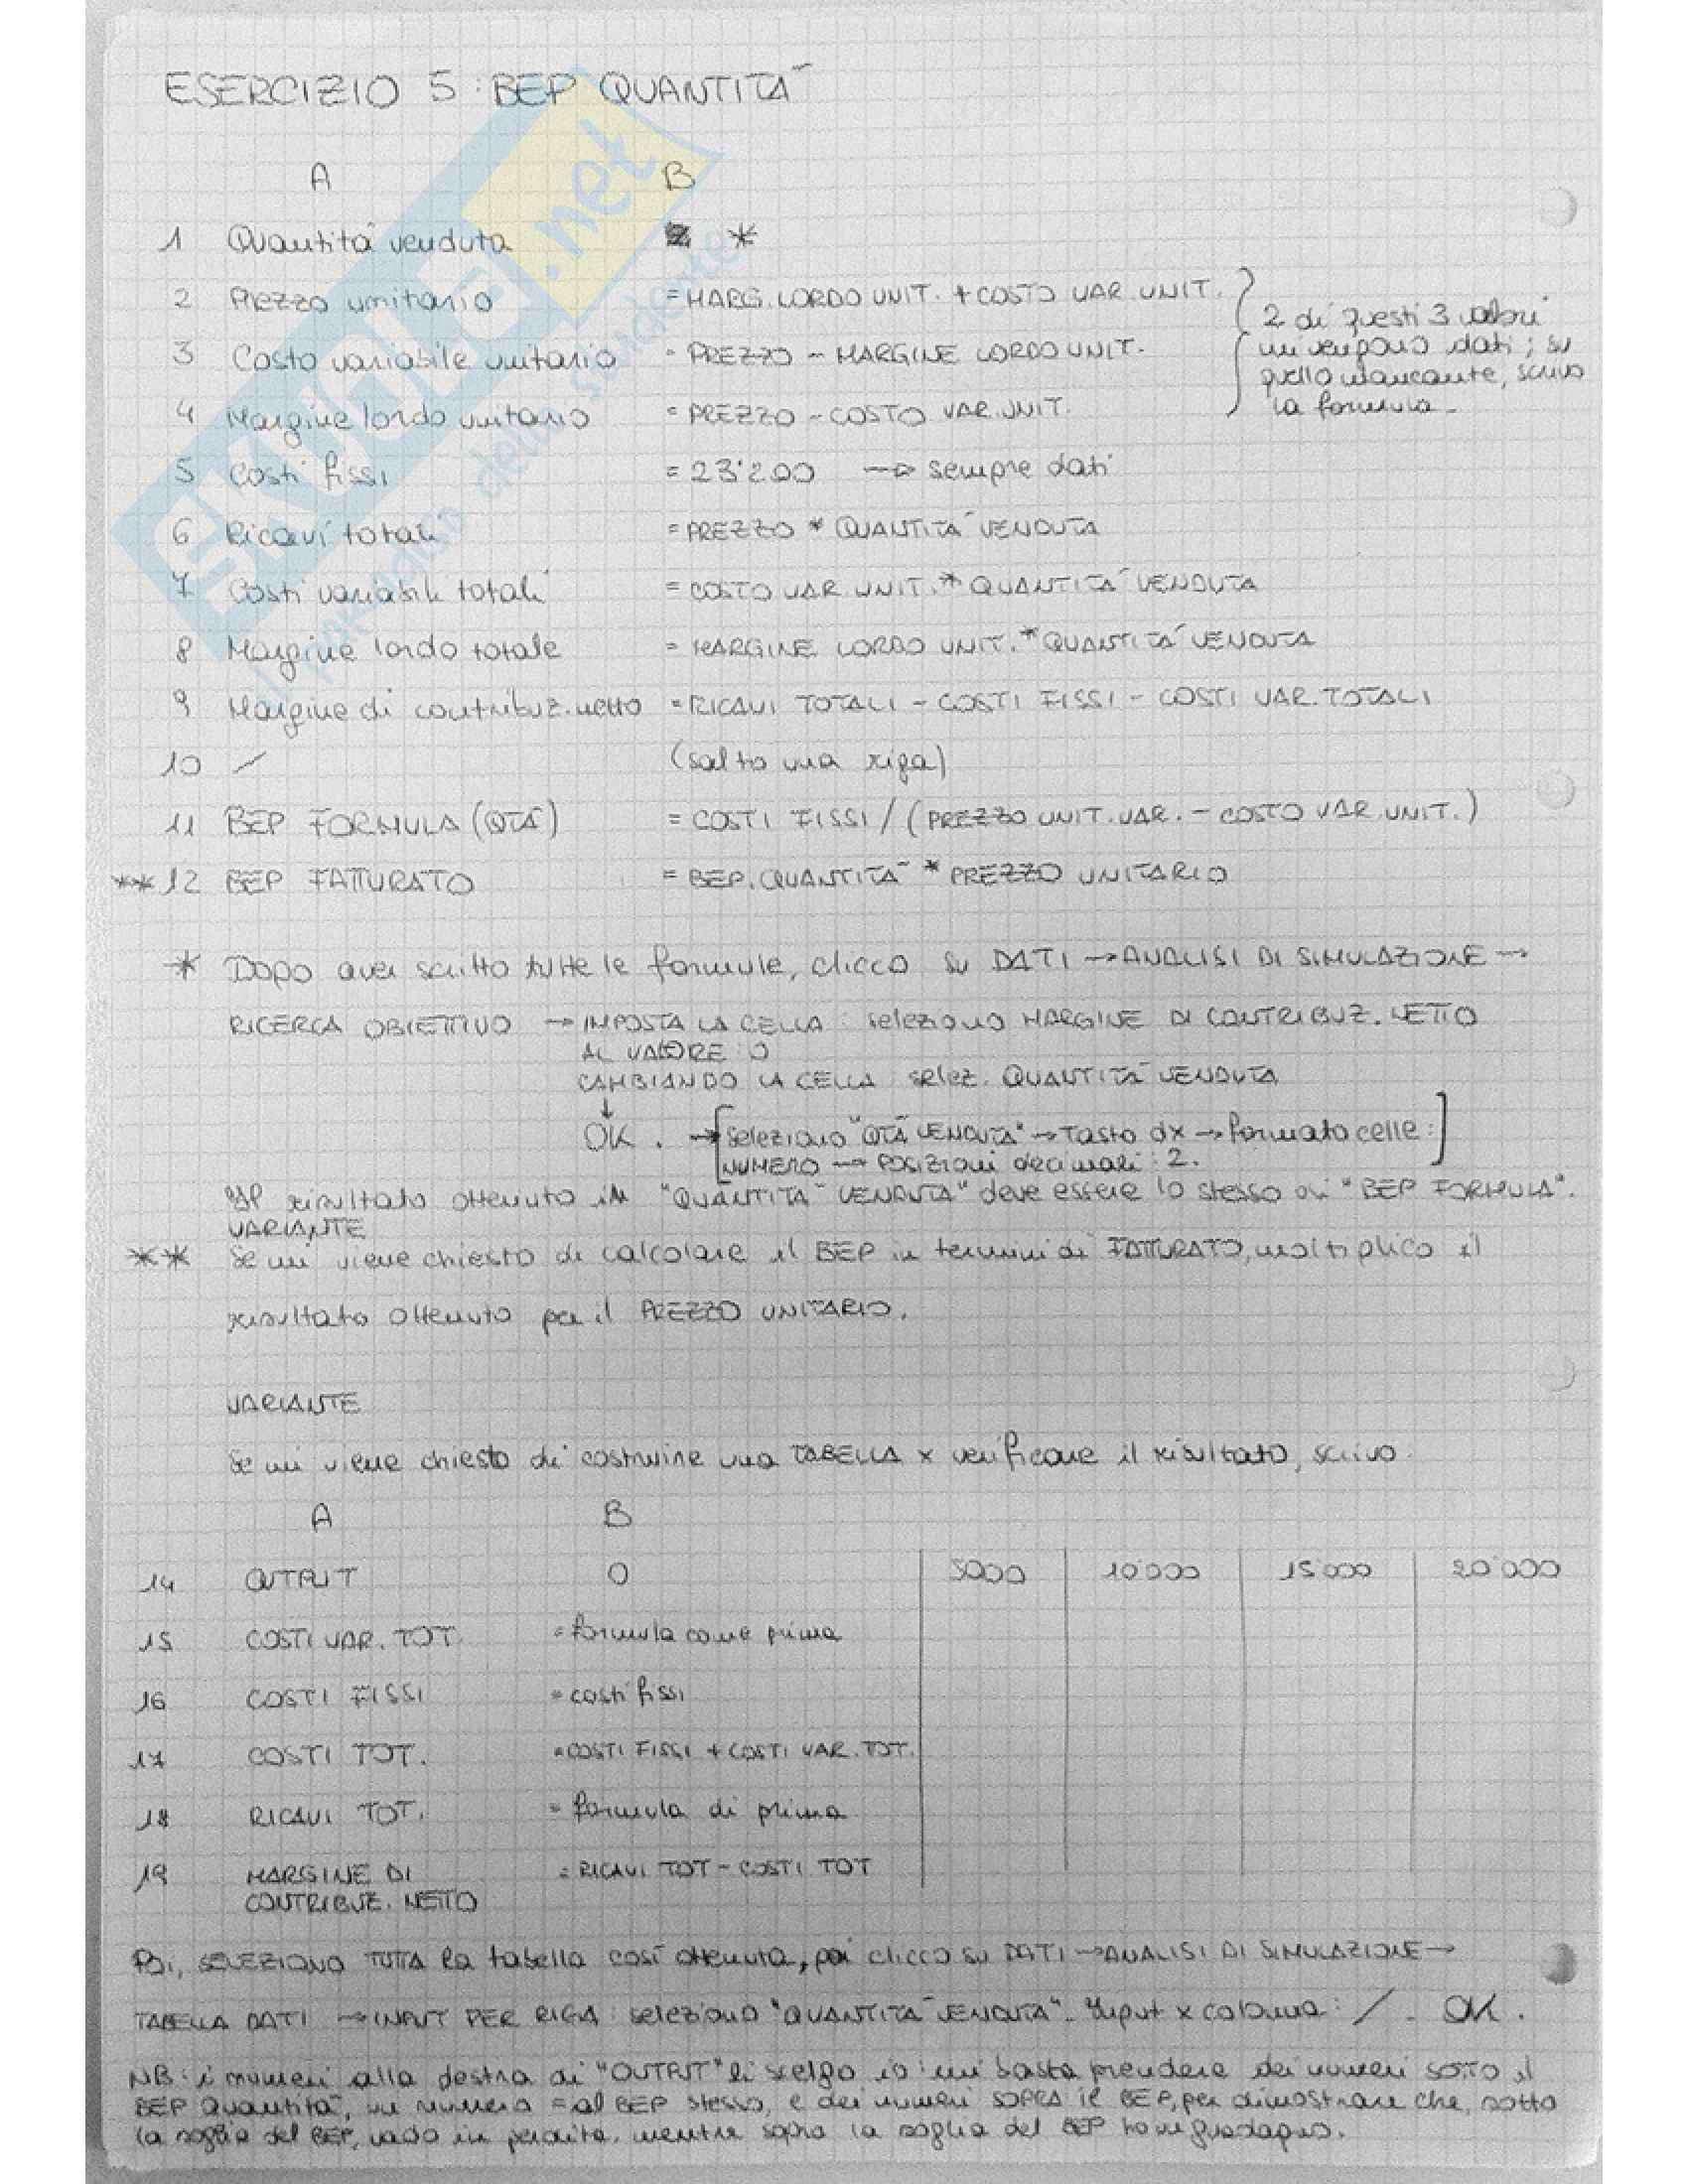 ESERCIZIO 5: BEP QUANTITÀ
A B
1 Quantità venduta *
2 Prezzo unitario = MARG. LORDO UNIT. + COSTO VAR. UNIT.
3 Costo variabile unitario = PREZZO - MARGINE LORDO UNIT.
4 Margine lordo unitario = PREZZO - COSTO VAR. UNIT.
2 di questi 3 valori
mi vengono dati; su
quello mancante, scrivo
la formula.
5 Costi fissi = 23'200 → sempre dati
6 Ricavi totali = PREZZO * QUANTITÀ VENDUTA
7 Costi variabili totali = COSTO VAR. UNIT. * QUANTITÀ VENDUTA
8 Margine lordo totale = MARGINE LORDO UNIT. * QUANTITÀ VENDUTA
9 Margine di contribuz. netto = RICAVI TOTALI - COSTI FISSI - COSTI VAR. TOTALI
10 / (salto una riga)
11 BEP FORMULA (QTÀ) = COSTI FISSI / (PREZZO UNIT. VAR. - COSTO VAR. UNIT.)
**12 BEP FATTURATO = BEP. QUANTITÀ * PREZZO UNITARIO
* Dopo aver scritto tutte le formule, clicco su DATI → ANALISI DI SIMULAZIONE →
RICERCA OBIETTIVO → IMPOSTA LA CELLA: seleziono MARGINE DI CONTRIBUZ. NETTO
AL VALORE: 0
CAMBIANDO LA CELLA: selez. QUANTITÀ VENDUTA
↓
OK. → [seleziono "QTÀ VENDUTA" → Tasto dx → formato celle:
NUMERO → POSIZIONI decimali: 2.]
Il risultato ottenuto in "QUANTITÀ VENDUTA" deve essere lo stesso di "BEP FORMULA".
VARIANTE
** Se mi viene chiesto di calcolare il BEP in termini di FATTURATO, moltiplico il
risultato ottenuto per il PREZZO UNITARIO.
VARIANTE
Se mi viene chiesto di costruire una TABELLA x verificare il risultato, scrivo:
A B
14 OUTPUT 0 5000 10'000 15'000 20'000
15 COSTI VAR. TOT. = formula come prima
16 COSTI FISSI = costi fissi
17 COSTI TOT. = COSTI FISSI + COSTI VAR. TOT.
18 RICAVI TOT. = formula di prima
19 MARGINE DI = RICAVI TOT - COSTI TOT
CONTRIBUZ. NETTO
Poi, SELEZIONO TUTTA la tabella così ottenuta, poi clicco su DATI → ANALISI DI SIMULAZIONE →
TABELLA DATI → INPUT PER RIGA: seleziono "QUANTITÀ VENDUTA". Input x colonna: /. OK.
NB: i numeri alla destra di "OUTPUT" li scelgo io: mi basta prendere dei numeri SOTTO il
BEP Quantità, un numero = al BEP stesso, e dei numeri SOPRA il BEP, per dimostrare che, sotto
la soglia del BEP, vado in perdita, mentre sopra la soglia del BEP ho un guadagno.